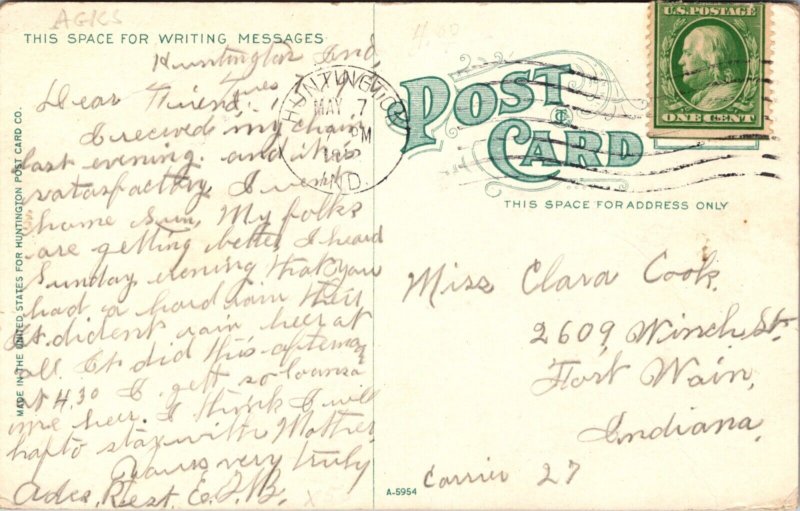 AGKS
THIS SPACE FOR WRITING MESSAGES
Huntington Ind,
Tues
Dear Friend,
I recived my chain
last evening. and it is
satasfactery. I went
home Sun, My folks
are getting better I heard
Sunday evening that you
had a hard rain their
it dident rain heer at
all. It did this afternoon
at 4.30 I gett so lonsa
me heer. I think I will
hafto stay with Mother,
Yours very truly
Adcs. Rest. E. J. B.
MADE IN THE UNITED STATES FOR HUNTINGTON POST CARD CO.
HUNTINGTON
MAY 7
PM
IND.
POST CARD
U.S. POSTAGE
ONE CENT
THIS SPACE FOR ADDRESS ONLY
Miss Clara Cook.
2609 Winch St.
Fort Wain,
Indiana,
Carrier 27
A-5954